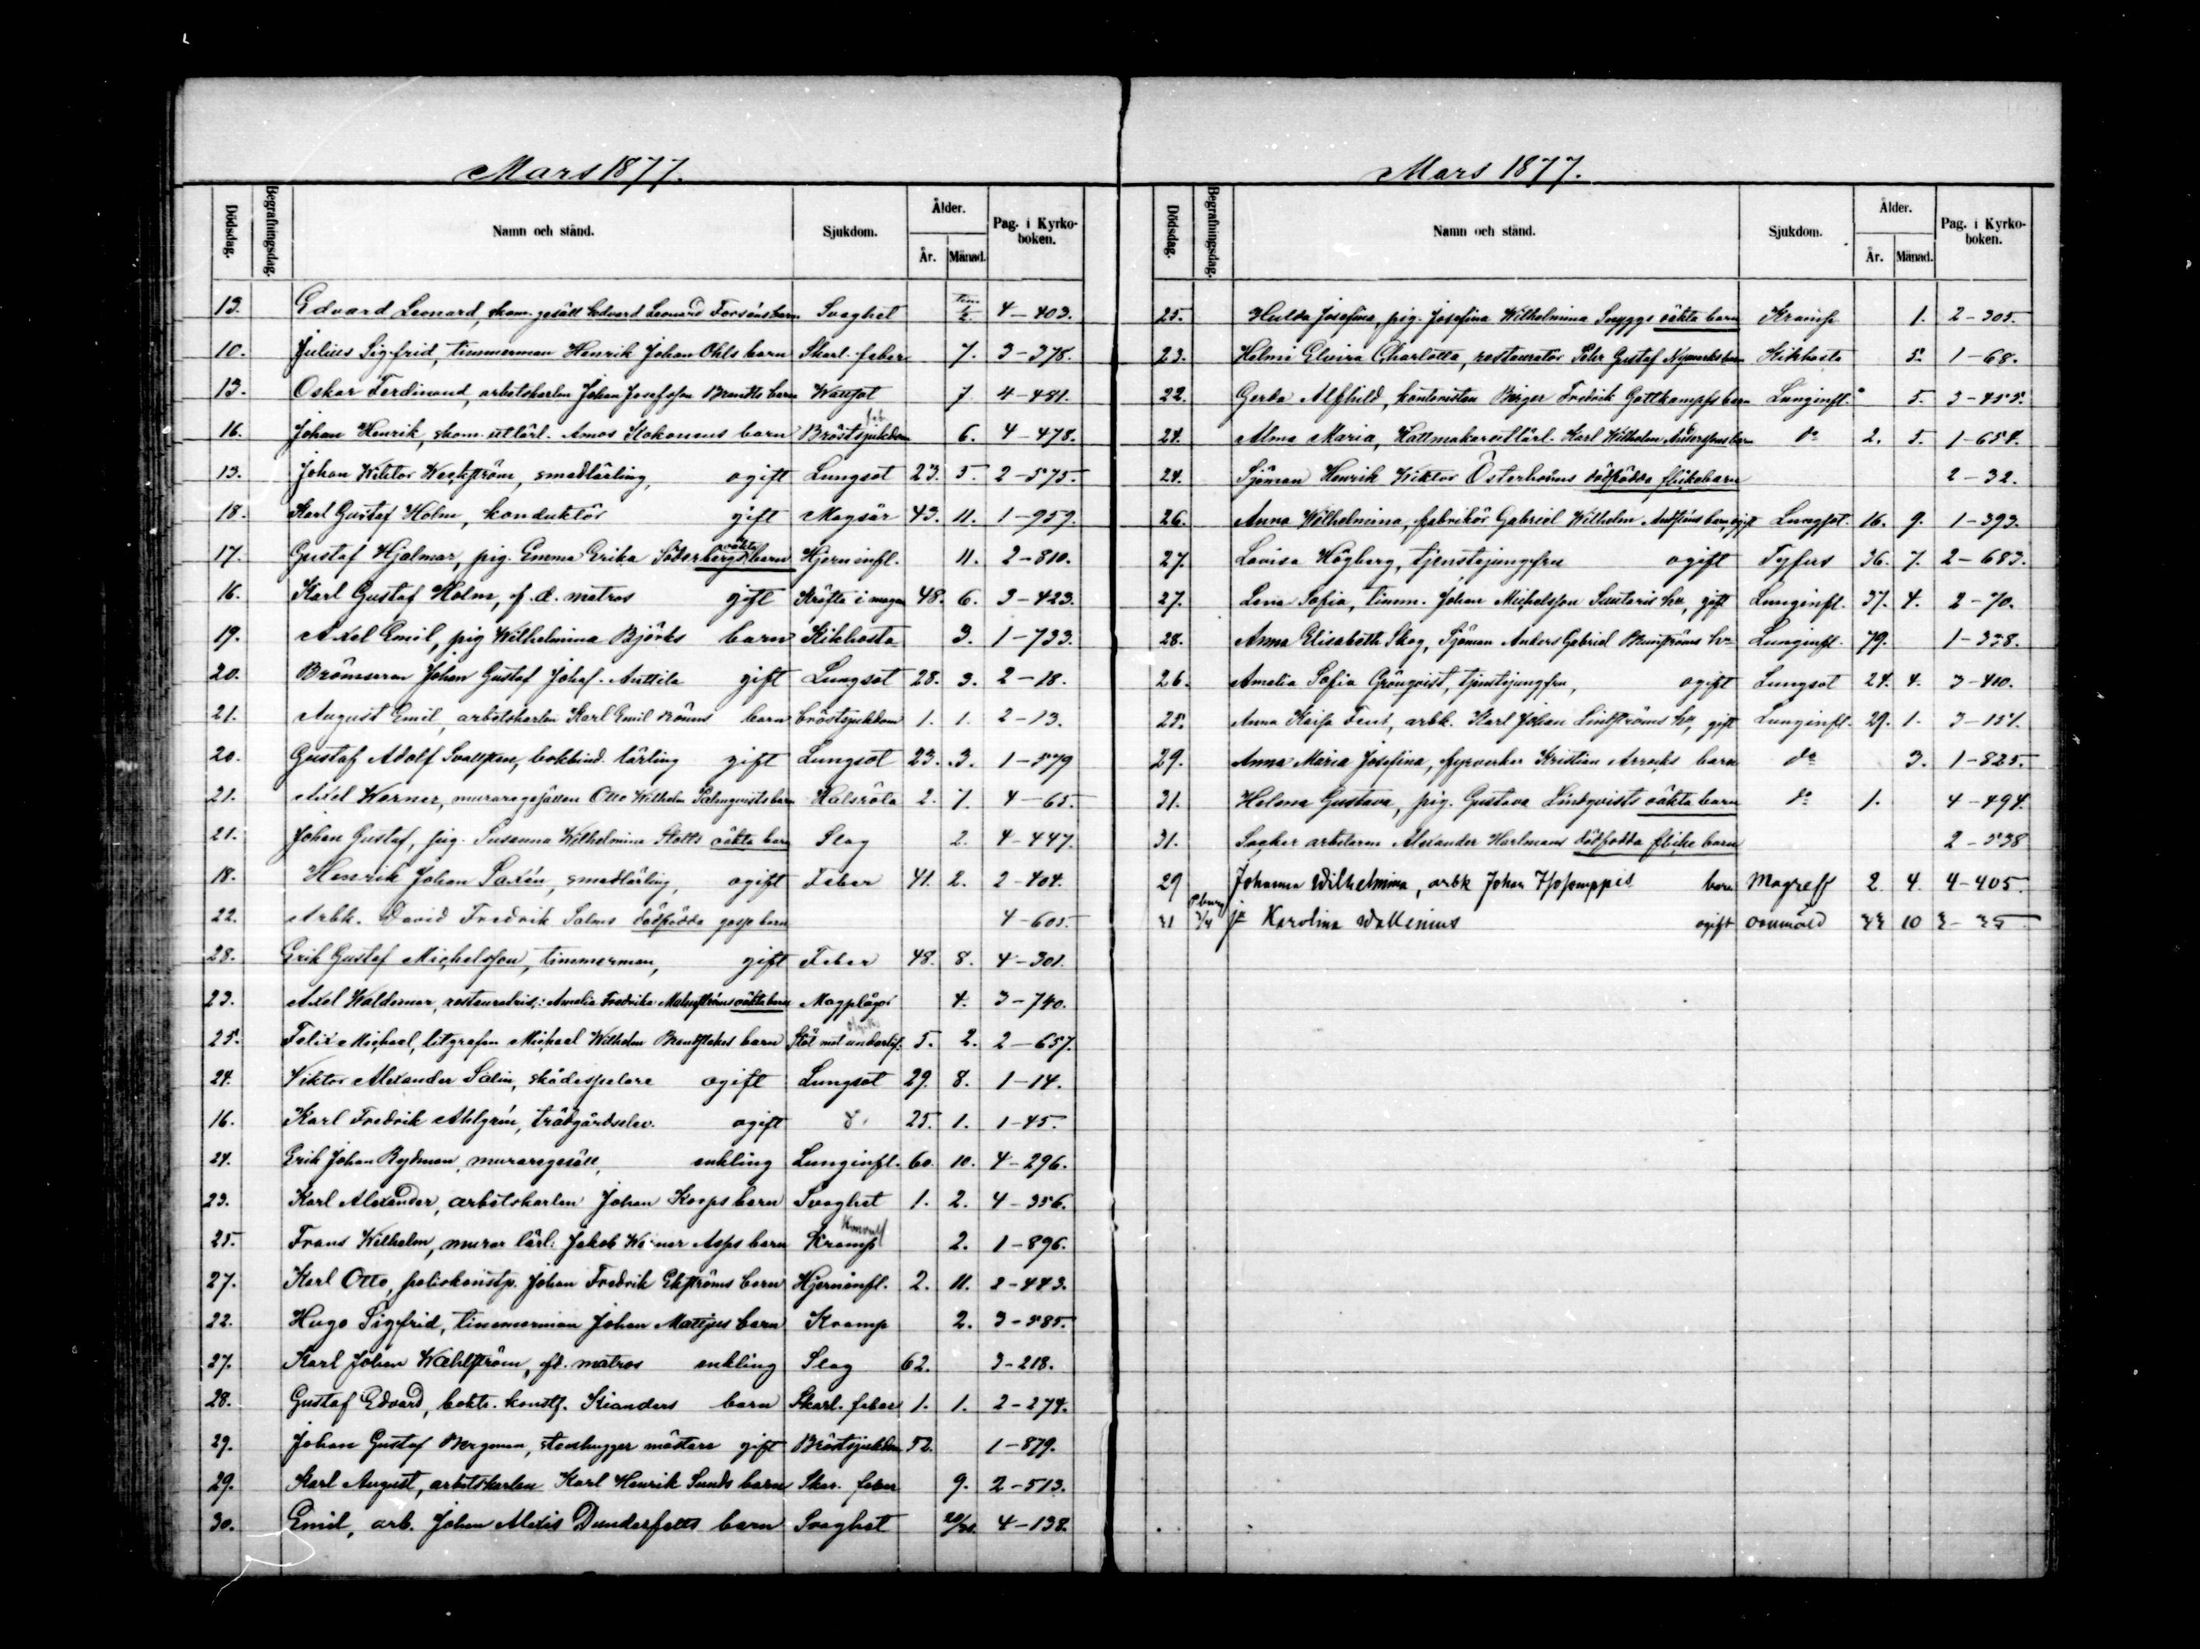 Mars 1877.
Dödsdag. Begrafningsdag. Namn och stånd. Sjukdom. Ålder. År. Månad. Pag. i Kyrkoboken.
13. Edvard Leonard, skom. gesäll Edvard Leonard Forséns barn Svaghet 4-403.
10. Julius Sigfrid, timmerman Henrik Johan Ohls barn Skarl. feber 7. 3-378.
13. Oskar Ferdinand, arbetskarlen Johan Josefsson Brandts barn Wattsot 7 4-481.
16. Johan Henrik, skom. utlärl. Amos Stokonens barn Bröstsjukdom 6. 4-478.
13. Johan Wiktor Weckström, smedlärling, ogift Lungsot 23. 5. 2-575.
18. Karl Gustaf Holm, konduktör gift Magsår 43. 11. 1-959.
17. Gustaf Hjalmar, pig. Emma Erika Söderbergs oäkta barn Hjerninfl. 11. 2-810.
16. Karl Gustaf Holm, f. d. matros gift Kräfta i magen 48. 6. 3-423.
19. Axel Emil, pig Wilhelmina Björks barn Kikhosta 3. 1-733.
20. Johan Gustaf Johsf. Anttila gift Lungsot 28. 3. 2-18.
21. August Emil, arbetskarlen Karl Emil Röms barn bröstsjukdom 1. 1. 2-13.
20. Gustaf Adolf bokbind. lärling gift Lungsot 23. 3. 1-579
21. Axel Werner, muraregesällen Otto Wilhelm Palmqvists barn Halsröta 2. 7. 4-65.
21. Johan Gustaf, pig. Susanna Wilhelmina Stolts oäkta barn Slag 2. 4-447.
18. Henrik Johan Saxén, smedlärling, ogift Feber 41. 2. 2-404.
22. Arbk. David Fredrik Salms dödfödda goss barn 4-605.
28. Erik Gustaf Michelsson, timmerman, gift Feber 48. 8. 4-301.
23. Axel Waldemar, restauratris: Amalia Fredrika Malmströms oäkta barn Magplågor 4. 3-740.
25. Felix Michael, litografen Michael Wilhelm barn Stöt mot 5. 2. 2-657.
24. Viktor Alexander Salin, skådespelare ogift Lungsot 29. 8. 1-14.
16. Karl Fredrik Ahlgrén, trädgårdselev. ogift d. 25. 1. 1-45.
24. Erik Johan Rydman, muraregesäll, enkling Lunginfl. 60. 10. 4-296.
23. Karl Alexander, arbetskarlen Johan Koops barn Svaghet 1. 2. 4-356.
25. Frans Wilhelm, murar lärl: Jakob Werner Asps barn Kramp 2. 1-896.
27. Karl Otto, poliskonstp. Johan Fredrik Ekströms barn Hjerninfl. 2. 11. 2-443.
22. Hugo Sigfrid, timmerman Johan Mattjus barn Kramp 2. 3-585.
27. Karl Johan Wahlström, fd. matros enkling Slag 62. 3-218.
28. Gustaf Edvard, boktr. konstf. Kianders barn Skarl. feber 1. 1. 2-274.
29. Johan Gustaf Bergman, stenhuggar mästare gift Bröstsjukdom 52. 1-879.
29. Karl August, arbetskarlen Karl Henrik Sunds barn Skar. feber 9. 2-513.
30. Emil, arb. Johan Alexis Dunderfelts barn Svaghet 4-138.
Mars 1877.
Dödsdag. Begrafningsdag. Namn och stånd. Sjukdom. Ålder. År. Månad. Pag. i Kyrkoboken.
25. Hulda Josefina, pig. Josefina Wilhelmina Snyggs oäkta barn Kramp 1. 2-305.
23. Helmi Elvira Charlotta, restauratör Pehr Gustaf Nymarks barn Kikhosta 5. 1-68.
22. Gerda Alfhild, kontoristen Birger Fredrik Gottkampfs barn Lunginfl. 5. 3-455.
24. Alma Maria, Hattmakareutlärl. Karl Wilhelm Anderssons barn do 2. 5. 1-654.
24. Sjöman Henrik Wiktor Österholms dödfödda flickebarn 2-32.
26. Anna Wilhelmina, fabrikör Gabriel Wilhelm barn, ogift Lungsot. 16. 9. 1-393.
27. Lovisa Högberg, tjenstejungfru ogift Tyfus 36. 7. 2-683.
27. Lena Sofia, timm. Johan Michelsson hu, gift Lunginfl. 37. 4. 2-70.
28. Anna Elisabeth Skog, Sjöman Anders Gabriel hu Lunginfl. 79. 1-338.
26. Amalia Sofia Grönqvist, tjenstejungfru, ogift Lungsot 24. 4. 3-410.
25. Anna Kaisa arbk. Karl Johan Lindströms hu, gift Lunginfl. 29. 1. 3-151.
29. Anna Maria Josefina, fyrverker Kristian barn do 3. 1-825.
31. Helena Gustava, pig. Gustava Lindqvists oäkta barn do 1. 4-494.
31. Socker arbetaren Alexander Harlmans dödfödda flicke barn 2-538
29 Johanna Wilhelmina, arbk Johan barn Magreff 2. 4. 4-405.
31 3/4 Karolina Wallenius ogift 33 10 3-35